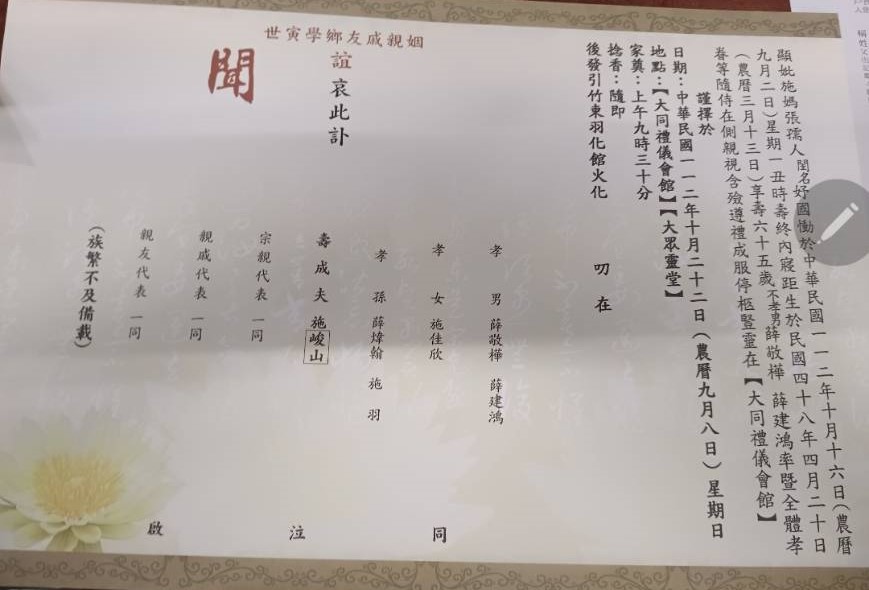 顯妣施媽張孺人閨名妤國慟於中華民國一一二年十月十六日(農曆
九月二日)星期一丑時壽終內寢距生於民國四十八年四月二十日
(農曆三月十三日)享壽六十五歲不孝男薛敬樺 薛建鴻率暨全體孝
眷等隨侍在側親視含殮遵禮成服停柩豎靈在【大同禮儀會館】
謹擇於
日期：中華民國一一二年十月二十二日(農曆九月八日)星期日
地點：【大同禮儀會館】【大眾靈堂】
家奠：上午九時三十分
捻香：隨即
後發引竹東羽化館火化
叨在
姻親戚友鄉學寅世
誼哀此訃
聞
孝男 薛敬樺 薛建鴻
孝女 施佳欣
孝孫 薛煒翰 施羽
壽成夫 施峻山
宗親代表 一同
親戚代表 一同
親友代表 一同
(族繁不及備載)
同
泣
啟